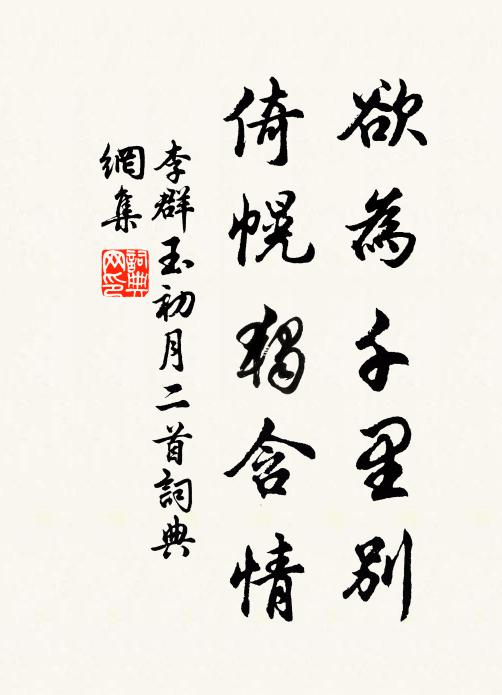 欲為千里別
倚幌獨含情
李群玉初月二首詞典
網集
詞典
网印